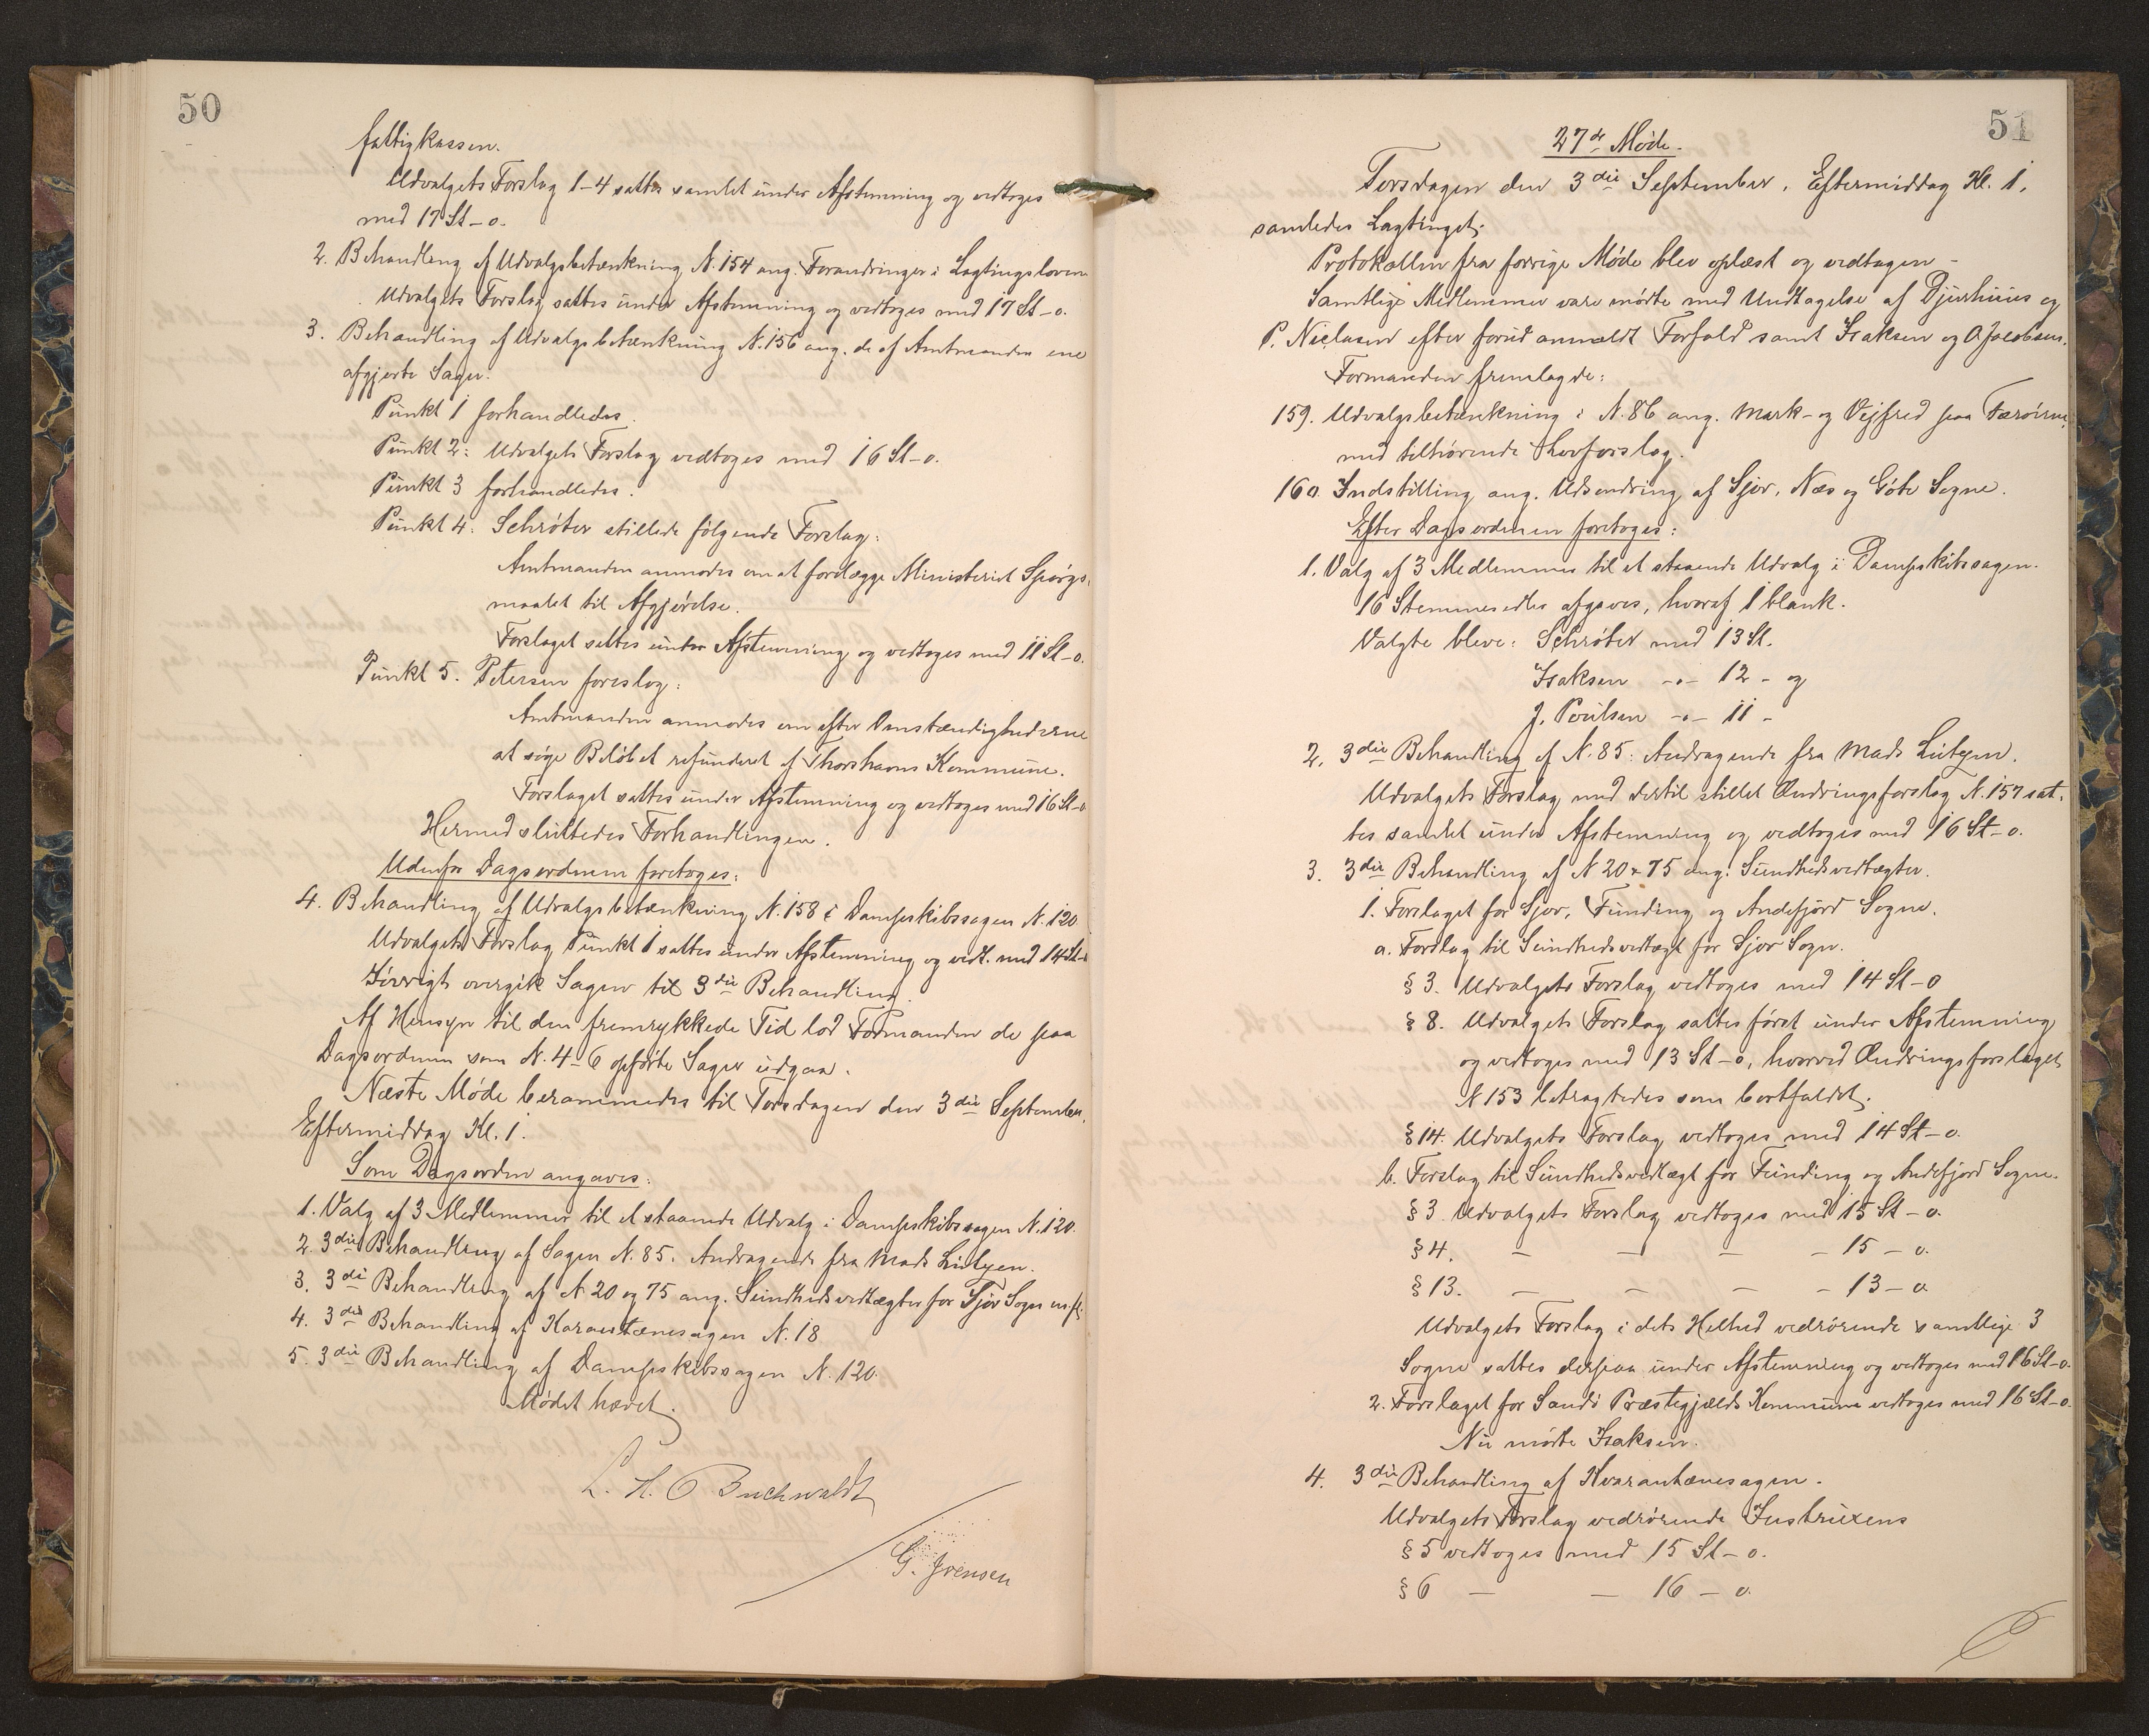 50
fattigkassen.
Udvalgets Forslag 1-4 sattes samlet under Afstemning og vedtoges
med 17 St - o.
2. Behandling af Udvalgsbetænkning N. 154 ang. Forandringer i Lagtingsloven
Udvalgets Forslag sattes under Afstemning og vedtoges med 17 St - o.
3. Behandling af Udvalgsbetænkning N. 156 ang. de af Amtmanden ene
afgjorte Sager.
Punkt 1 forhandledes.
Punkt 2: Udvalgets Forslag vedtoges med 16 St - o.
Punkt 3 forhandledes.
Punkt 4. Schrøter stillede følgende Forslag:
Amtmanden anmodes om at forelægge Ministeriet Spørgs-
maalet til Afgjørelse.
Forslaget sattes under Afstemning og vedtoges med 11 St - o.
Punkt 5. Petersen foreslog:
Amtmanden anmodes om efter Omstændighederne
at søge Beløbet refunderet af Thorshavns Kommune.
Forslaget sattes under Afstemning og vedtoges med 16 St - o
Hermed sluttedes Forhandlingen.
Udenfor Dagsordenen foretoges:
4. Behandling af Udvalgsbetænkning N. 158 i Dampskibssagen N. 120
Udvalgets Forslag Punkt 1 sattes under Afstemning og vedt. med 14 St -
Iøvrigt overgik Sagen til 3die Behandling.
Af Hensyn til den fremrykkede Tid lod Formanden de paa
Dagsordenen som N. 4-6 opførte Sager udgaa.
Næste Møde berammedes til Torsdagen den 3die September,
Eftermiddag Kl. 1.
Som Dagsorden angaves:
1. Valg af 3 Medlemmer til et staaende Udvalg i Dampskibssagen N. 120.
2. 3die Behandling af Sagen N. 85. Andragende fra Mads Lützen.
3. 3die Behandling af N 20 og 75 ang. Sundhedsvedtægter for Sjov Sogn m.fl.
4. 3die Behandling af Karantænesagen N. 18
5. 3die Behandling af Dampskibssagen N. 120.
Mødet hævet.
L. H. O Buchwaldt
G. Joensen
51
27de Møde.
Torsdagen den 3die September, Eftermiddag Kl. 1,
samledes Lagtinget.
Protokollen fra forrige Møde blev oplæst og vedtagen -
Samtlige Medlemmer vare mødte med Undtagelse af Djurhuus og
P. Niclasen efter forud anmeldt Forfald samt Isaksen og O Jacobsen.
Formanden fremlagde:
159. Udvalgsbetænkning i N. 86 ang. Mark- og Vejfred paa Færøerne,
med tilhørende Lovforslag.
160. Indstilling ang. Udsondring af Sjov, Næs og Gøte Sogne.
Efter Dagsordenen foretoges:
1. Valg af 3 Medlemmer til et staaende Udvalg i Dampskibssagen.
16 Stemmesedler afgaves, hvoraf 1 blank.
Valgte bleve: Schrøter med 13 St.
Isaksen -"- 12 - og
J. Poulsen -"- 11 -
2. 3die Behandling af N. 85: Andragende fra Mads Lützen.
Udvalgets Forslag med dertil stillet Ændringsforslag N. 157 sat-
tes samlet under Afstemning og vedtoges med 16 St - o.
3. 3die Behandling af N 20 & 75 ang. Sundhedsvedtægter.
1. Forslaget for Sjov, Funding og Andefjord Sogne.
a. Forslag til Sundhedsvedtægt for Sjov Sogn.
§ 3. Udvalgets Forslag vedtoges med 14 St - o
§ 8. Udvalgets Forslag sattes først under Afstemning
og vedtoges med 13 St - o, hvorved Ændringsforslaget
N 153 betragtedes som bortfaldet.
§ 14. Udvalgets Forslag vedtoges med 14 St - o.
b. Forslag til Sundhedsvedtægt for Funding og Andefjord Sogne.
§ 3. Udvalgets Forslag vedtoges med 15 St - o.
§ 4. - - - - 15 - o.
§ 13. - - - - 13 - o.
Udvalgets Forslag i dets Helhed vedrørende samtlige 3
Sogne sattes derpaa under Afstemning og vedtoges med 16 St - o.
2. Forslaget for Sandø Præstegjælds Kommune vedtoges med 16 St - o.
Nu mødte Isaksen.
4. 3die Behandling af Kvarantænesagen.
Udvalgets Forslag vedrørende Instruxens
§ 5 vedtoges med 15 St - o.
§ 6 - - 16 - o.